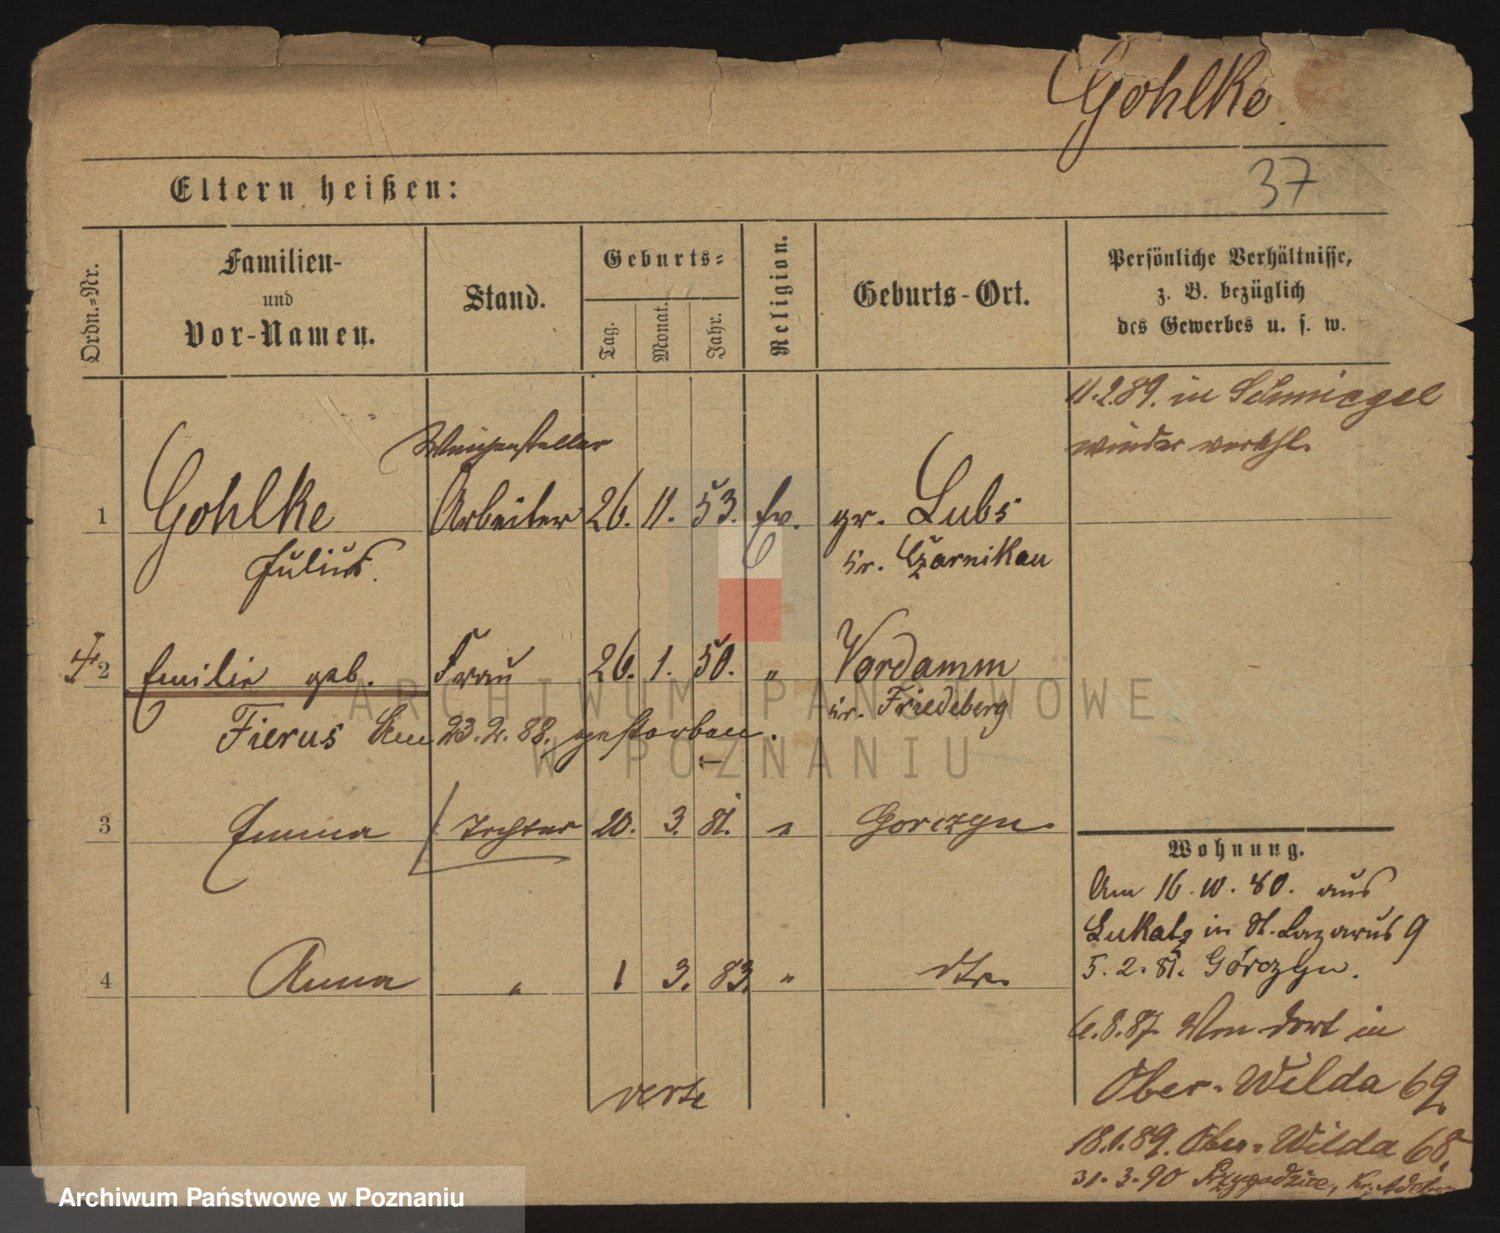 Gohlke.
37
Eltern heißen:
Ordn.=Nr.
Familien-
und
Vor-Namen.
Stand.
Geburts=
Tag.
Monat.
Jahr.
Religion.
Geburts-Ort.
Persönliche Verhältnisse,
z. B. bezüglich
des Gewerbes u. s. w.
11.2.89. in Schmiegel
wieder verehl.
Weichensteller
1 Gohlke Arbeiter 26. 11. 53. Ev. gr. Lubs
Julius. Kr. Czarnikau
2 Emilie geb. Frau 26. 1. 50. " Vordamm
Kr. Friedeberg
Fierus Am 23.2.88. gestorben.
3 Emma Tochter 20. 3. 81. " Gorczyn.
Wohnung.
Am 16.10.80. aus
Lukatz in St. Lazarus 9
5.2.81. Górczyn.
4 Anna " 1 3. 83. " dto.
6.8.87. Von dort in
Ober-Wilda 69.
verte
18.1.89. Ober-Wilda 68.
31.3.90 Przygodzice, Kr. Adelnau
ARCHIWUM PAŃSTWOWE
W POZNANIU
Archiwum Państwowe w Poznaniu